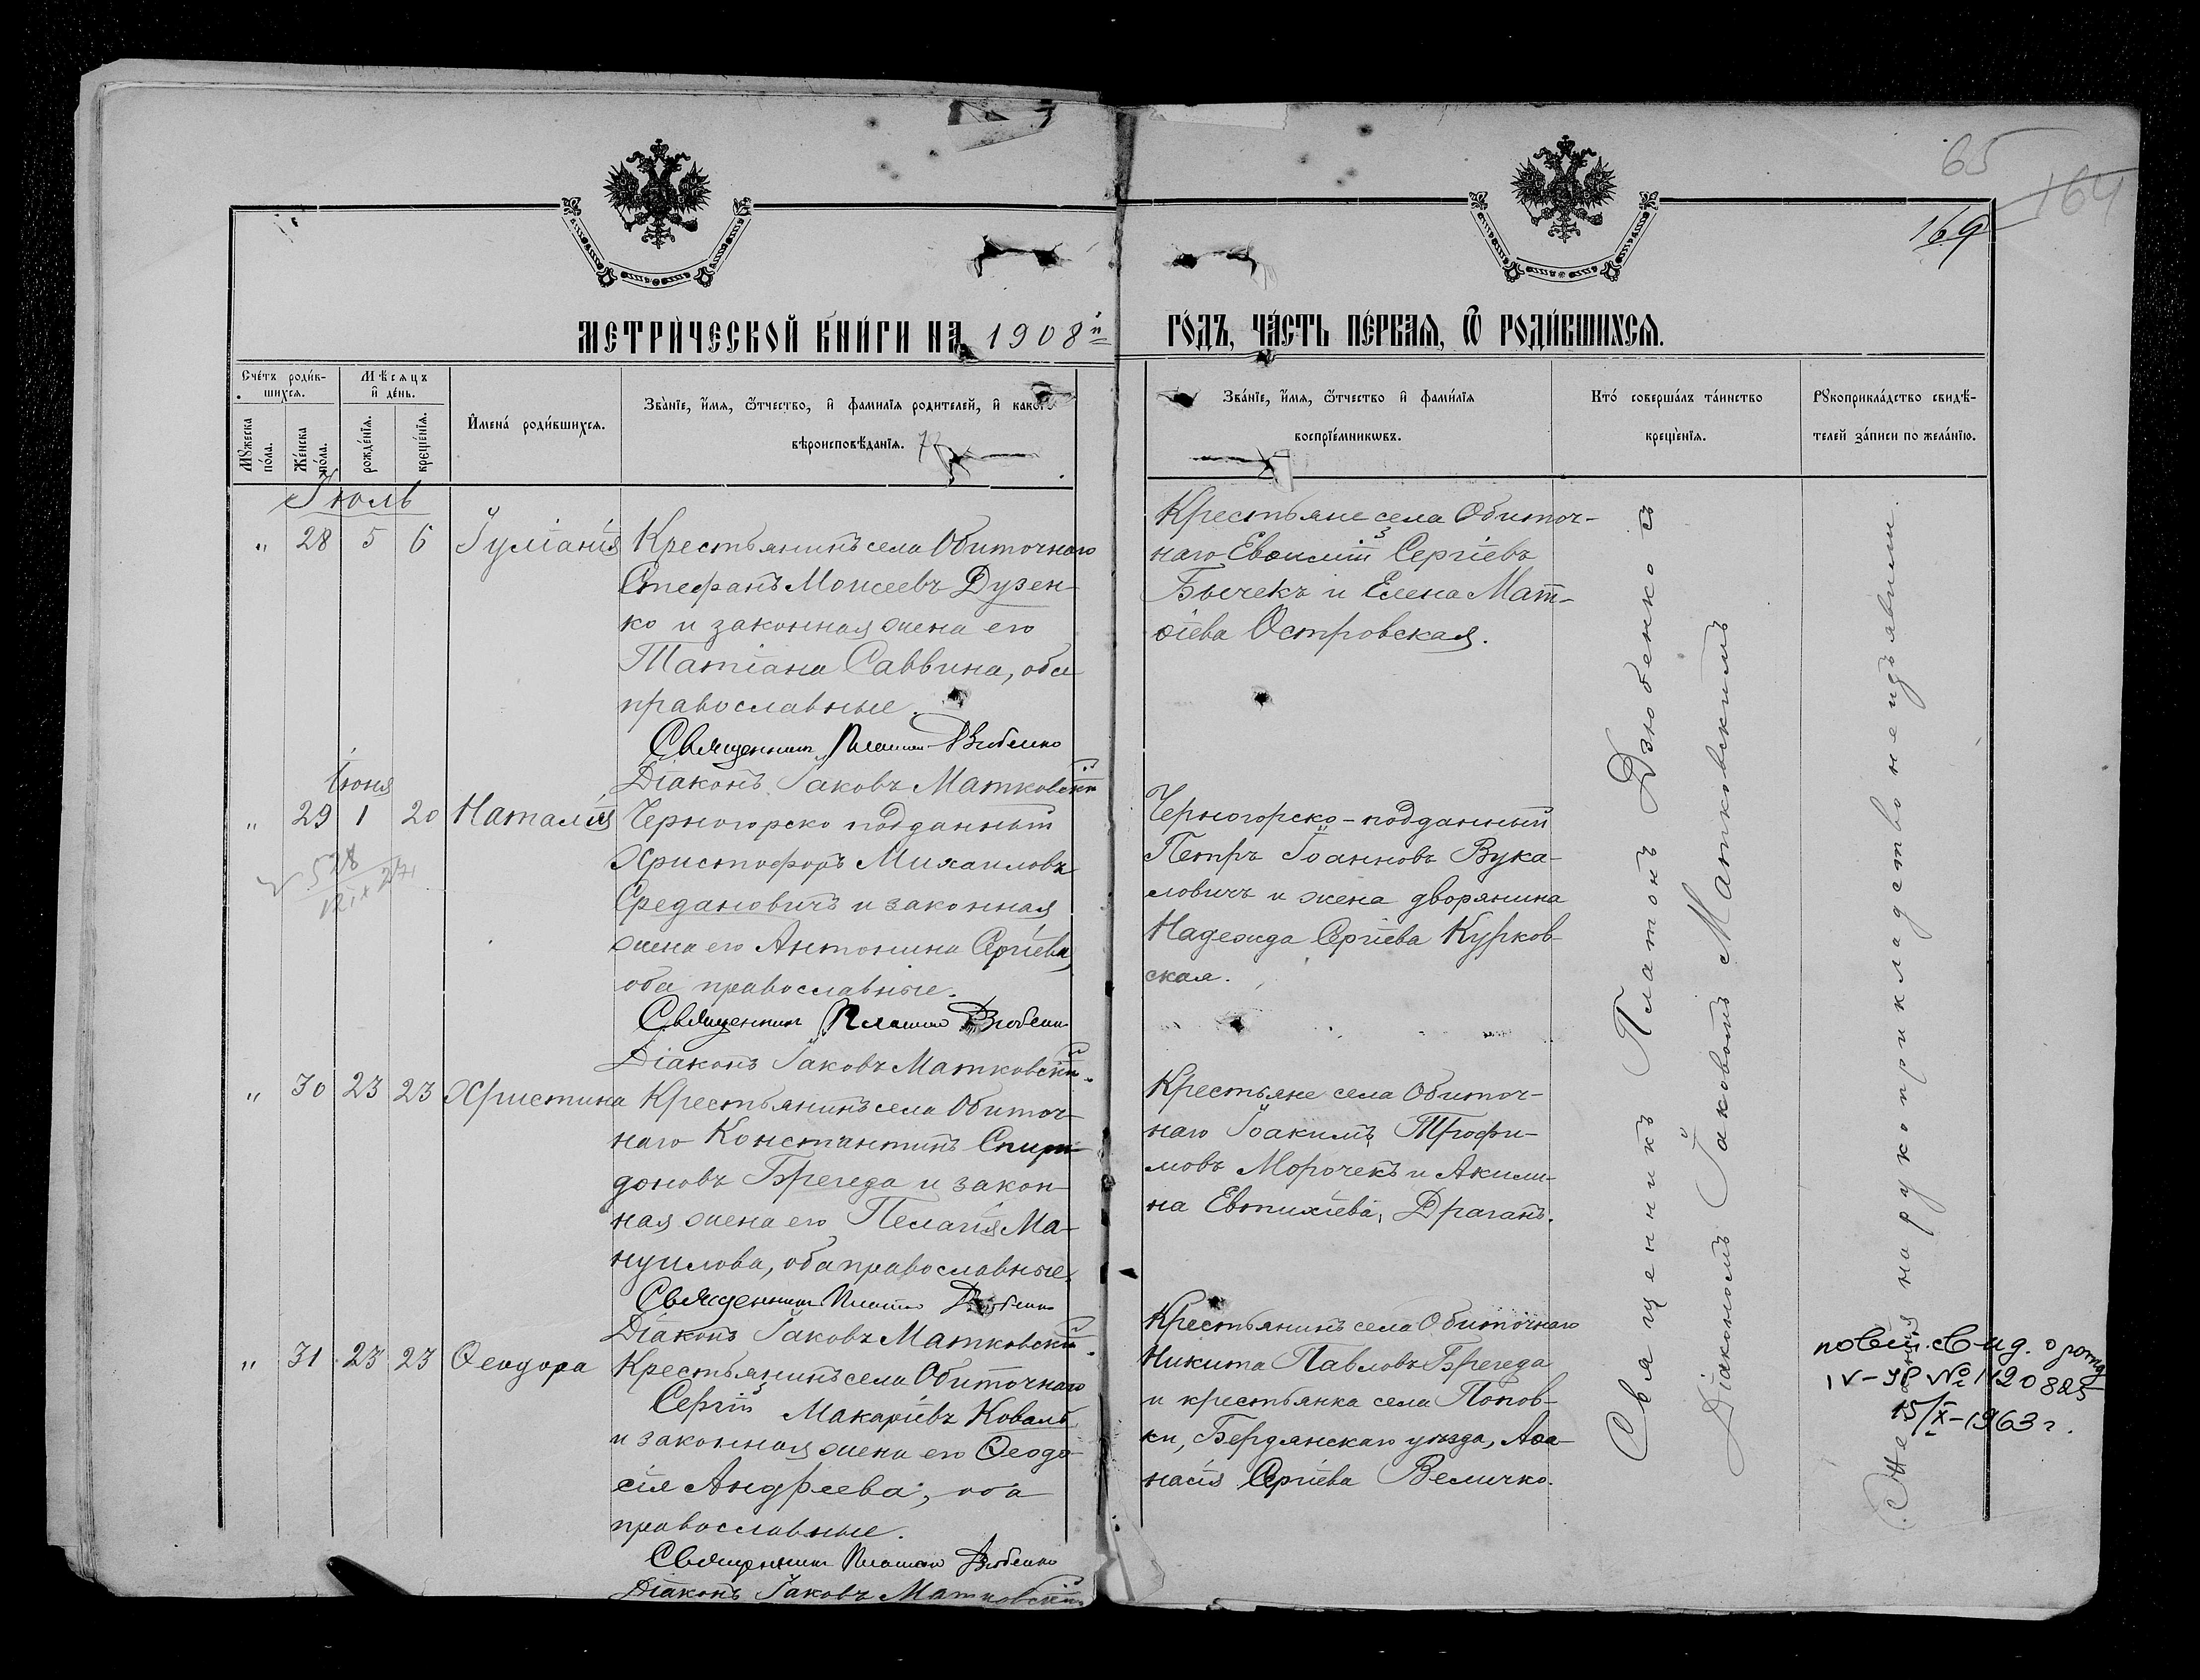 65
164
169
МЕТРИ́ЧЕСКОЙ КНИ́ГИ НА 1908й
ГО́ДЪ, ЧА́СТЬ ПЕ́РВАѦ, Ѿ РОДИ́ВШИХСѦ.
Сче́тъ роди́в-
шихсѧ.
Мꙋ́жеска
по́ла.
Же́нска
по́ла.
Мѣ́сѧцъ
и҆ де́нь.
рожде́нїѧ.
креще́нїѧ.
И҆мена̀ роди́вшихсѧ.
Зва́нїе, и҆́мѧ, ѻ҆́тчество, и҆ фами́лїѧ роди́телей, и҆ како́гѡ
вѣроисповѣ́данїѧ.
Зва́нїе, и҆́мѧ, ѻ҆́тчество и҆ фами́лїѧ
воспрїе́мникѡвъ.
Кто́ соверша́лъ та́инство
креще́нїѧ.
Рꙋкоприкла́дство свидѣ́-
телей за́писи по жела́нїю.
Іюль
" 28 5 6 Іуліанія
Крестьянинъ села Обиточнаго
Стефанъ Моисеевъ Дузен-
ко и законная жена его
Татіана Саввина, оба
православные.
Священникъ Платонъ Дзюбенко
Діаконъ Іаковъ Матковскій
Крестьяне села Обиточ-
наго Евѳимій Сергіевъ
Бычекъ и Елена Мат-
ѳіева Островская.
Іюня
" 29 1 20 Наталія
528
Черногорско подданный
Христофоръ Михаиловъ
Средановичъ и законная
жена его Антонина Сергіева,
оба православные.
Священникъ Платонъ Дзюбенко
Діаконъ Іаковъ Матковскій.
Черногорско-подданный
Петръ Іоанновъ Вука-
ловичъ и жена дворянина
Надежда Сергіева Курков-
ская.
" 30 23 23 Христина
Крестьянинъ села Обиточ-
наго Константинъ Спири-
доновъ Брегеда и закон-
ная жена его Пелагія Ма-
нуилова, оба православные.
Священникъ Платонъ Дзюбенко
Діаконъ Іаковъ Матковскій.
Крестьяне села Обиточ-
наго Іоакимъ Трофи-
мовъ Морочекъ и Акили-
на Евтихіева, Драганъ.
" 31 23 23 Ѳеодора
Крестьянинъ села Обиточнаго
Сергій Макаріевъ Коваль
и законная жена его Ѳеодо-
сія Андреева, оба
православные.
Священникъ Платонъ Дзюбенко
Діаконъ Іаковъ Матковскій
Крестьянинъ села Обиточнаго
Никита Павловъ Брегеда
и крестьянка села Попов-
ки, Бердянскаго уѣзда, Аѳа-
насія Сергіева Величко.
Священникъ Платонъ Дзюбенко съ
Діакономъ Іаковомъ Матковскимъ
Желанія на рукоприкладство не изъявили.
повт. свид. о рожд
IV-ЯР № 1120825
15/X-1963 г.